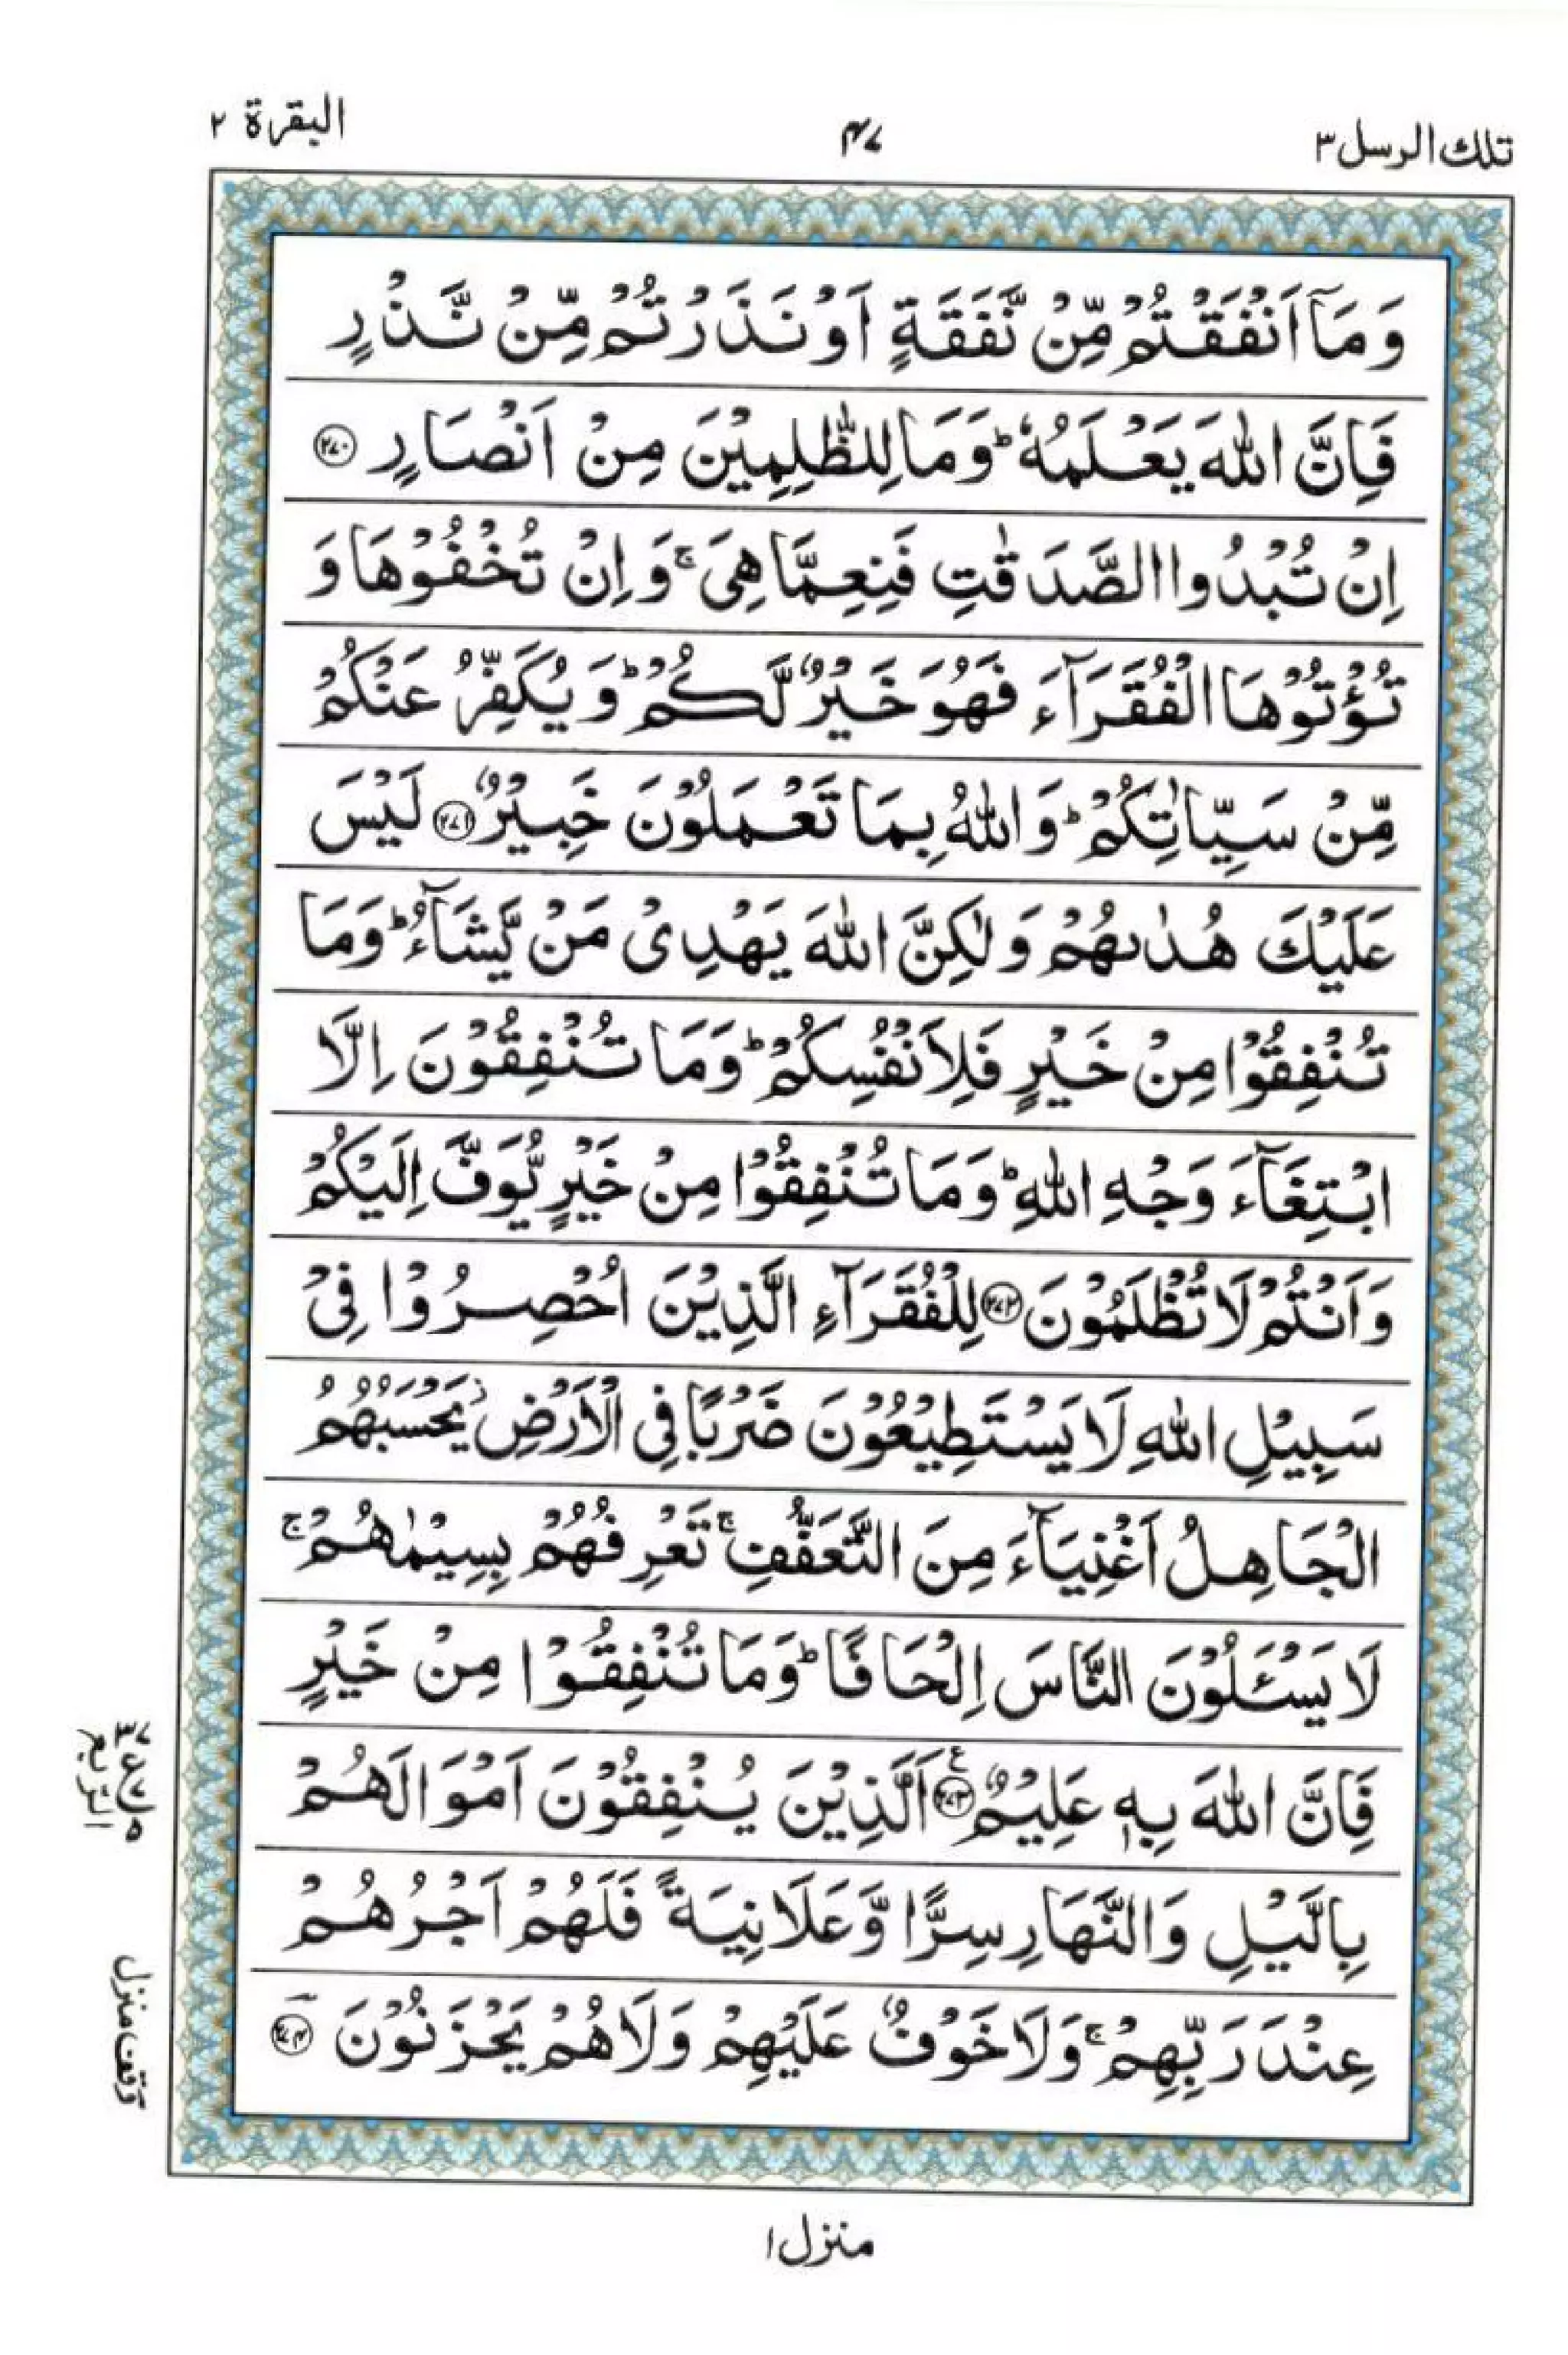 تلك الرسل ٣
٤٧
البقرة ٢
وَمَاۤ اَنْفَقْتُمْ مِّنْ نَّفَقَةٍ اَوْ نَذَرْتُمْ مِّنْ نَّذْرٍ
فَاِنَّ اللّٰهَ يَعْلَمُهٗ ؕ وَمَا لِلظّٰلِمِيْنَ مِنْ اَنْصَارٍ ﴿۲۷۰﴾
اِنْ تُبْدُوا الصَّدَقٰتِ فَنِعِمَّا هِىَ ۚ وَاِنْ تُخْفُوْهَا وَ
تُؤْتُوْهَا الْفُقَرَآءَ فَهُوَ خَيْرٌ لَّكُمْ ؕ وَيُكَفِّرُ عَنْكُمْ
مِّنْ سَيِّاٰتِكُمْ ؕ وَاللّٰهُ بِمَا تَعْمَلُوْنَ خَبِيْرٌ ﴿۲۷۱﴾ لَيْسَ
عَلَيْكَ هُدٰىهُمْ وَلٰكِنَّ اللّٰهَ يَهْدِىْ مَنْ يَّشَآءُ ؕ وَمَا
تُنْفِقُوْا مِنْ خَيْرٍ فَلِاَنْفُسِكُمْ ؕ وَمَا تُنْفِقُوْنَ اِلَّا
ابْتِغَآءَ وَجْهِ اللّٰهِ ؕ وَمَا تُنْفِقُوْا مِنْ خَيْرٍ يُّوَفَّ اِلَيْكُمْ
وَاَنْتُمْ لَا تُظْلَمُوْنَ ﴿۲۷۲﴾ لِلْفُقَرَآءِ الَّذِيْنَ اُحْصِرُوْا فِىْ
سَبِيْلِ اللّٰهِ لَا يَسْتَطِيْعُوْنَ ضَرْبًا فِى الْاَرْضِ ۫ يَحْسَبُهُمُ
الْجَاهِلُ اَغْنِيَآءَ مِنَ التَّعَفُّفِ ۚ تَعْرِفُهُمْ بِسِيْمٰهُمْ ۚ
لَا يَسْـَٔلُوْنَ النَّاسَ اِلْحَافًا ؕ وَمَا تُنْفِقُوْا مِنْ خَيْرٍ
فَاِنَّ اللّٰهَ بِهٖ عَلِيْمٌ ﴿۲۷۳﴾ اَلَّذِيْنَ يُنْفِقُوْنَ اَمْوَالَهُمْ
بِالَّيْلِ وَالنَّهَارِ سِرًّا وَّعَلَانِيَةً فَلَهُمْ اَجْرُهُمْ
عِنْدَ رَبِّهِمْ ۚ وَلَا خَوْفٌ عَلَيْهِمْ وَلَا هُمْ يَحْزَنُوْنَ ﴿۲۷۴﴾
الربع
وقف منزل
منزل ١